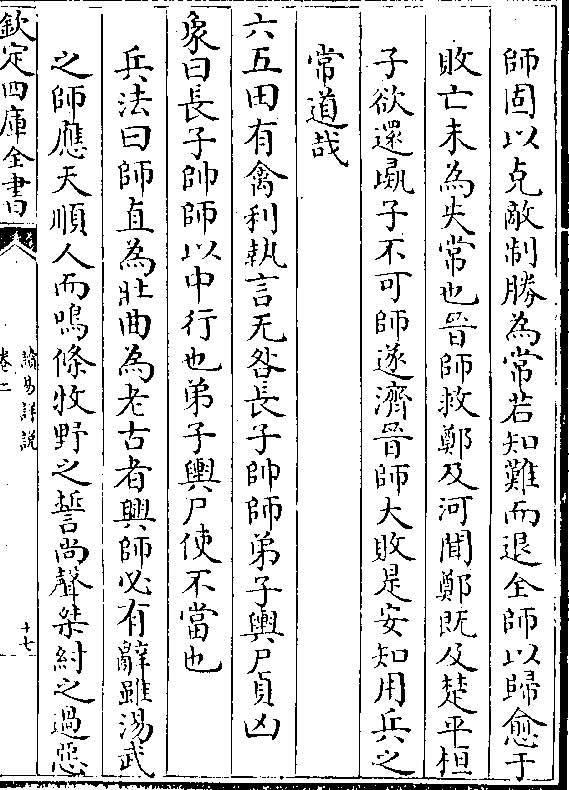 師固以克敵制勝為常若知難而退全師以歸愈于
敗亡未為失常也晉師救鄭及河聞鄭既及楚平桓
子欲還彘子不可師遂濟晉師大敗是安知用兵之
常道哉
六五田有禽利執言无咎長子帥師弟子輿尸貞凶
象曰長子帥師以中行也弟子輿尸使不當也
兵法曰師直為壯曲為老古者興師必有辭雖湯武
之師應天順人而鳴條牧野之誓尚聲桀紂之過惡
欽定四庫全書
讀易詳說
卷二
十七